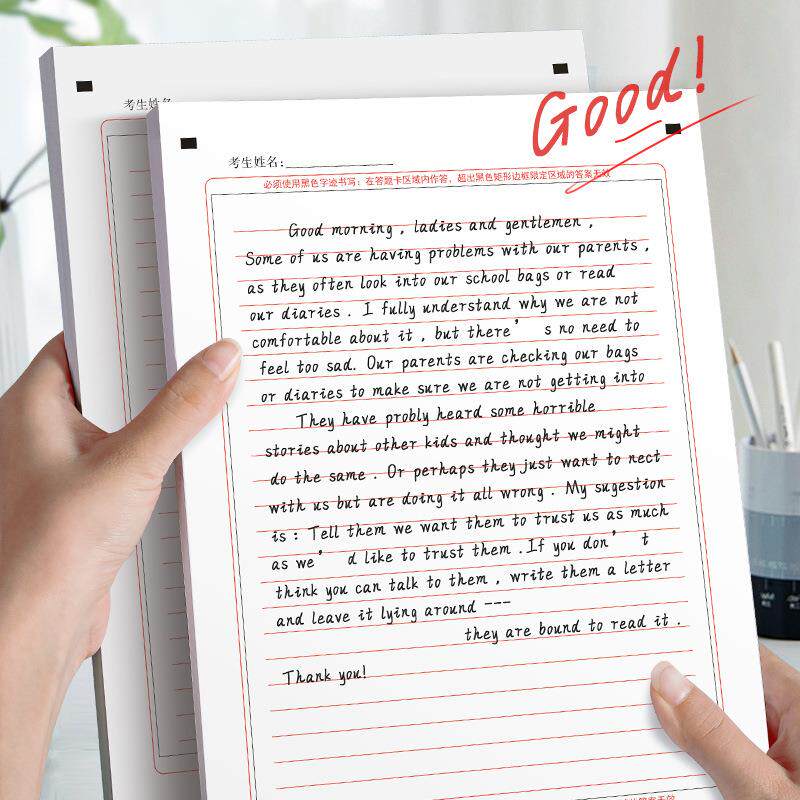 考生姓名
Good!
考生姓名:
必须使用黑色字迹书写:在答题卡区域内作答,超出黑色矩形边框限定区域的答案无效
Good morning , ladies and gentlemen ,
Some of us are having problems with our parents ,
as they often look into our school bags or read
our diaries . I fully understand why we are not
comfortable about it , but there’ s no need to
feel too sad. Our parents are checking our bags
or diaries to make sure we are not getting into
They have probly heard some horrible
stories about other kids and thought we might
do the same . Or perhaps they just want to nect
with us but are doing it all wrong . My sugestion
is : Tell them we want them to trust us as much
as we’ d like to trust them .If you don’ t
think you can talk to them , write them a letter
and leave it lying around ---
they are bound to read it .
Thank you!